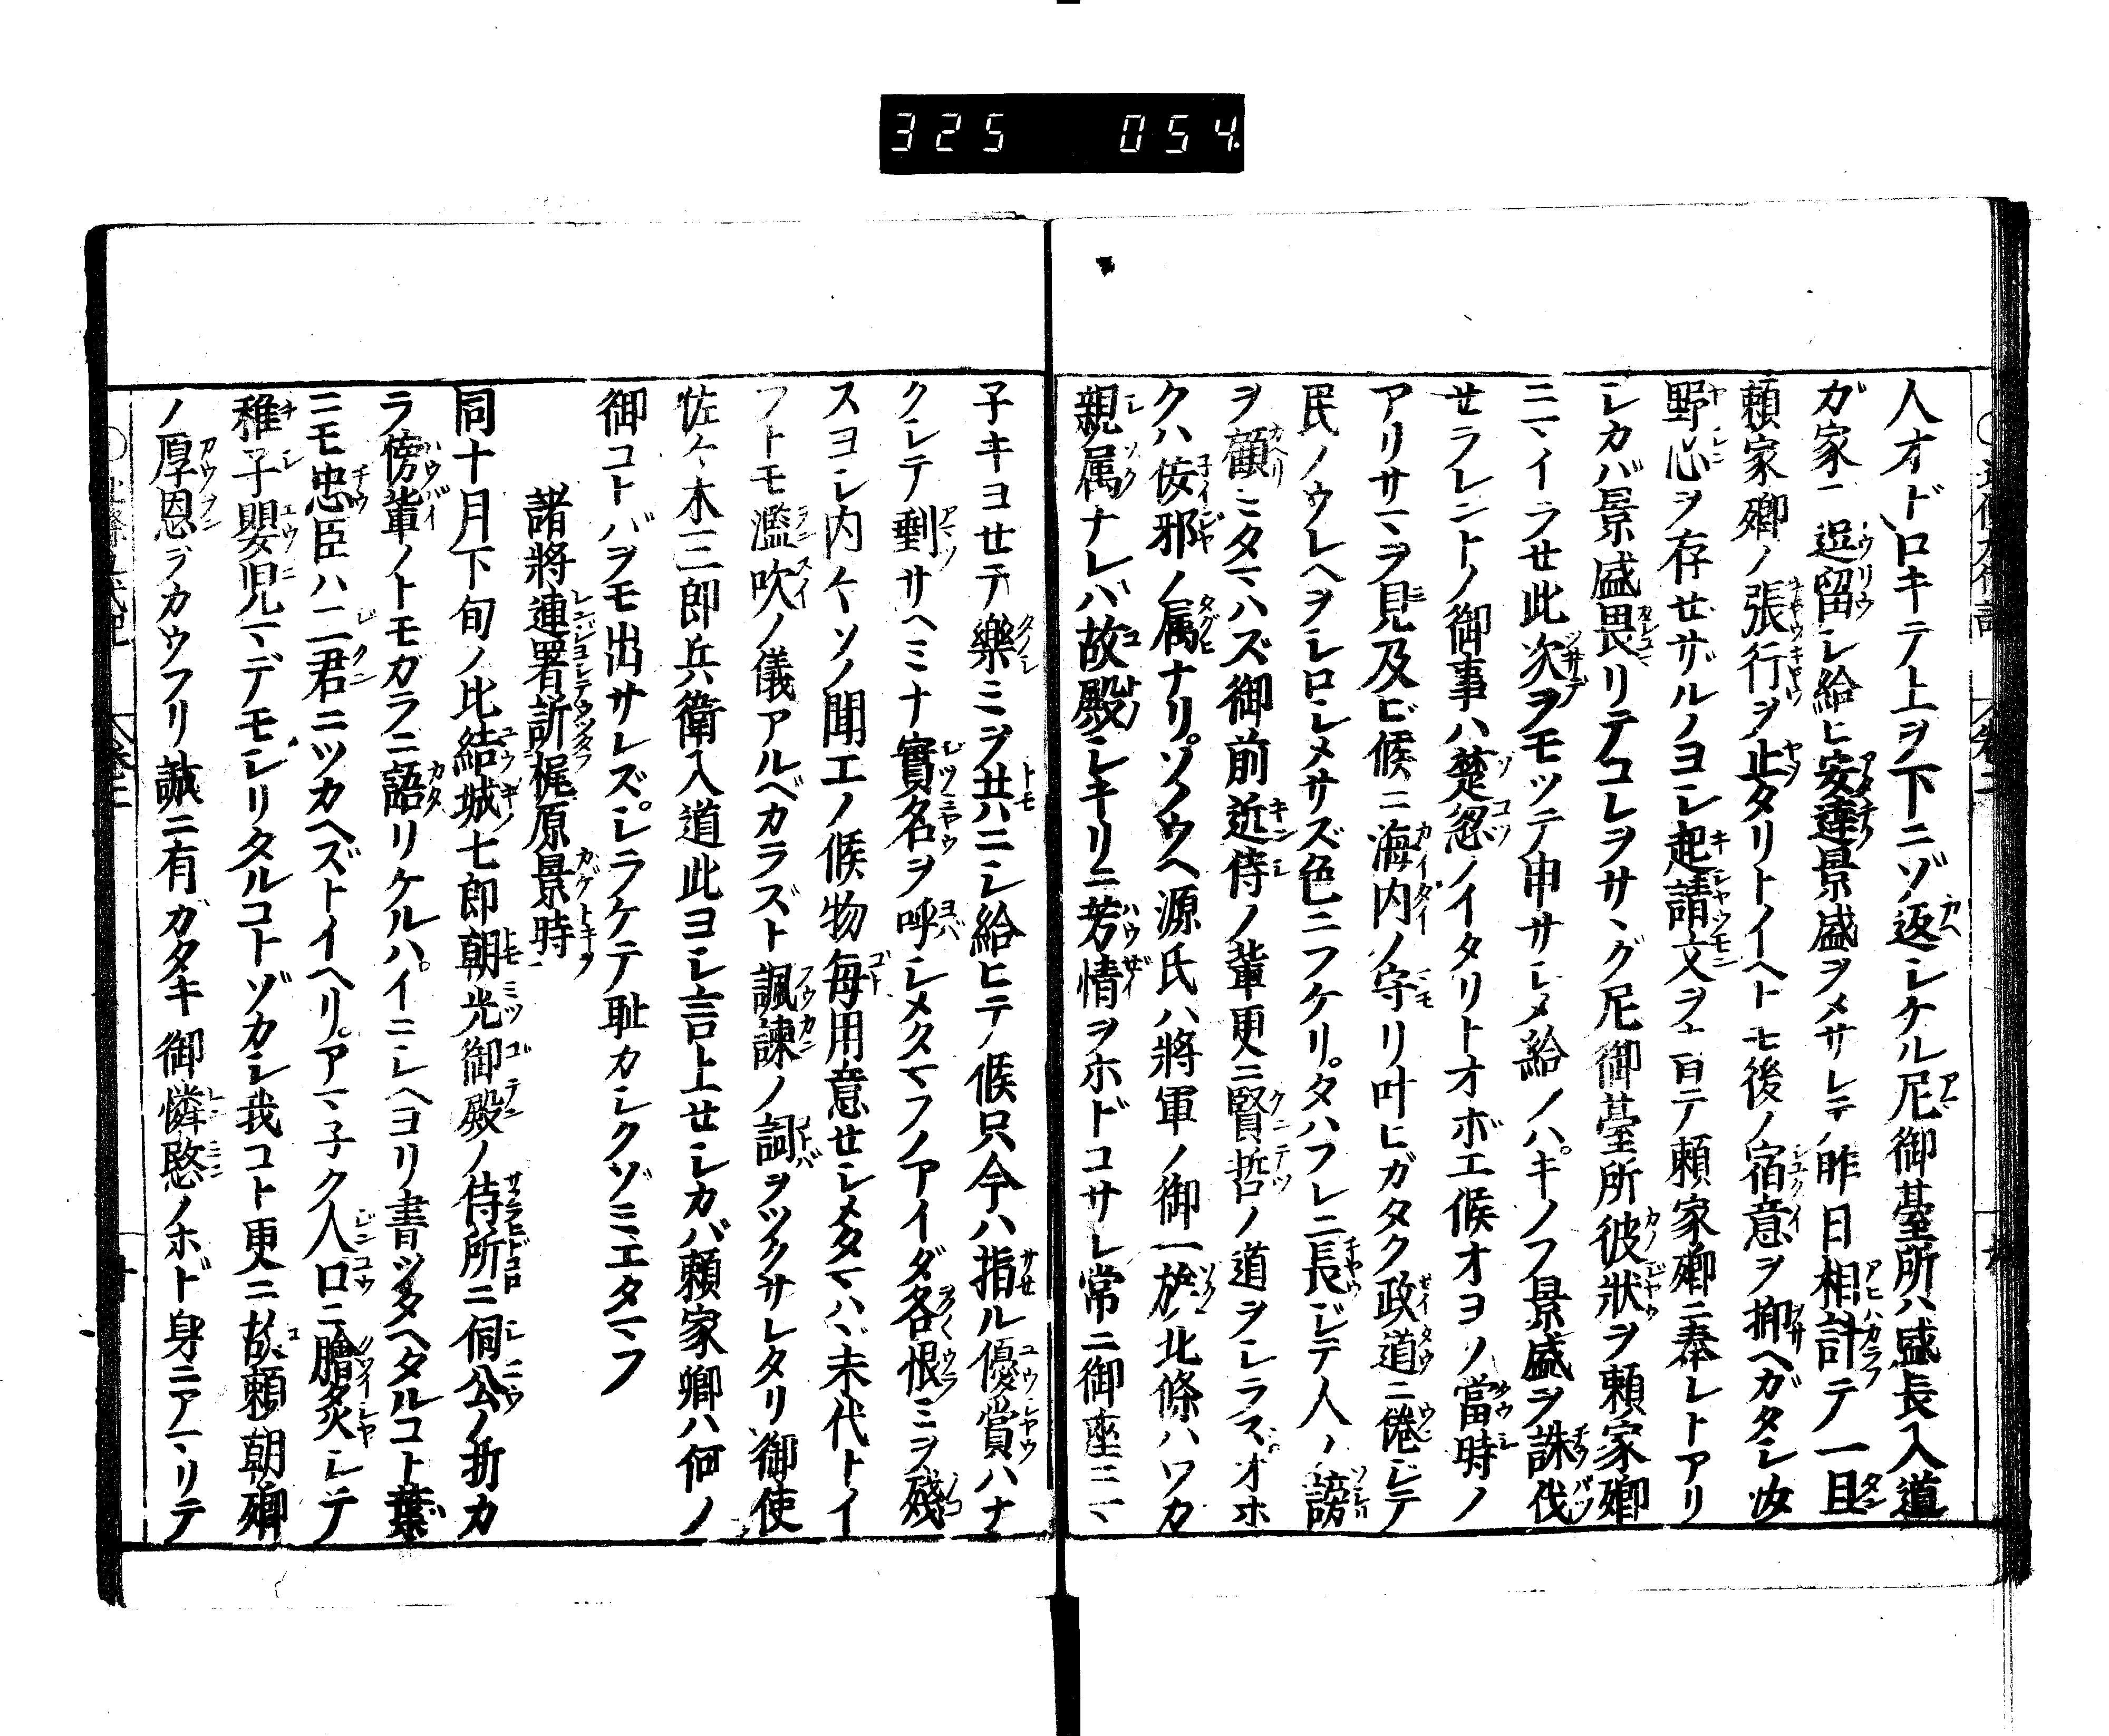 325 054
人オドロキテ上ヲ下ニゾ返シケル尼御臺所ハ盛長入道
ガ家ニ逗留シ給ヒ安達景盛ヲメサレテ昨日相計テ一旦
頼家卿ノ張行ヲ止タリトイヘトモ後ノ宿意ヲ抑ヘガタシ汝
野心ヲ存セザルノヨシ起請文ヲ書テ頼家卿ニ奉レトアリ
シカバ景盛畏リテコレヲサヽグ尼御臺所彼狀ヲ頼家卿
ニマイラせ此次ヲモツテ申サシメ給ノハキノフ景盛ヲ誅伐
せラレントノ御事ハ楚忽ノイタリトオボエ候オヨソ當時ノ
アリサマヲ見及ビ候ニ海内ノ守リ叶ヒガタク政道ニ倦シテ
民ノウレヘヲシロシメサズ色ニフケリタハフレニ長ジテ人ノ謗
ヲ顧ミタマハズ御前近侍ノ輩更ニ賢哲ノ道ヲシラスオホ
クハ侫邪ノ属ナリソノウヘ源氏ハ將軍ノ御一族北條ハワカ
親属ナレバ故殿シキリニ芳情ヲホドコサレ常ニ御座ニマ
子キヨせテ樂ミヲ共ニシ給ヒテノ候只今ハ指ル優賞ハナ
クシテ剰サヘミナ實名ヲ呼シメタマフノアイダ各恨ミヲ殘
スヨシ内々ソノ聞エノ候物毎用意せシメタマハヽ末代トイ
フトモ濫吹ノ儀アルベカラズト諷諫ノ詞ヲツクサレタリ御使
佐々木三郎兵衛入道此ヨシ言上せシカバ頼家卿ハ何ノ
御コトバヲモ出サレズシラケテ耻カシクゾミエタマフ
諸將連署訴梶原景時
同十月下旬ノ比結城七郎朝光御殿ノ侍所ニ伺公ノ折カ
ラ傍輩ノトモガラニ語リケルハイニシヘヨリ書ツタヘタルコト葉
ニモ忠臣ハ二君ニツカヘズトイヘリアマ子ク人口ニ膾炙シテ
稚子嬰児マデモシリタルコトゾカシ我コト更ニ故頼朝卿
ノ厚恩ヲカウフリ誠ニ有ガタキ御憐愍ノホド身ニアマリテ